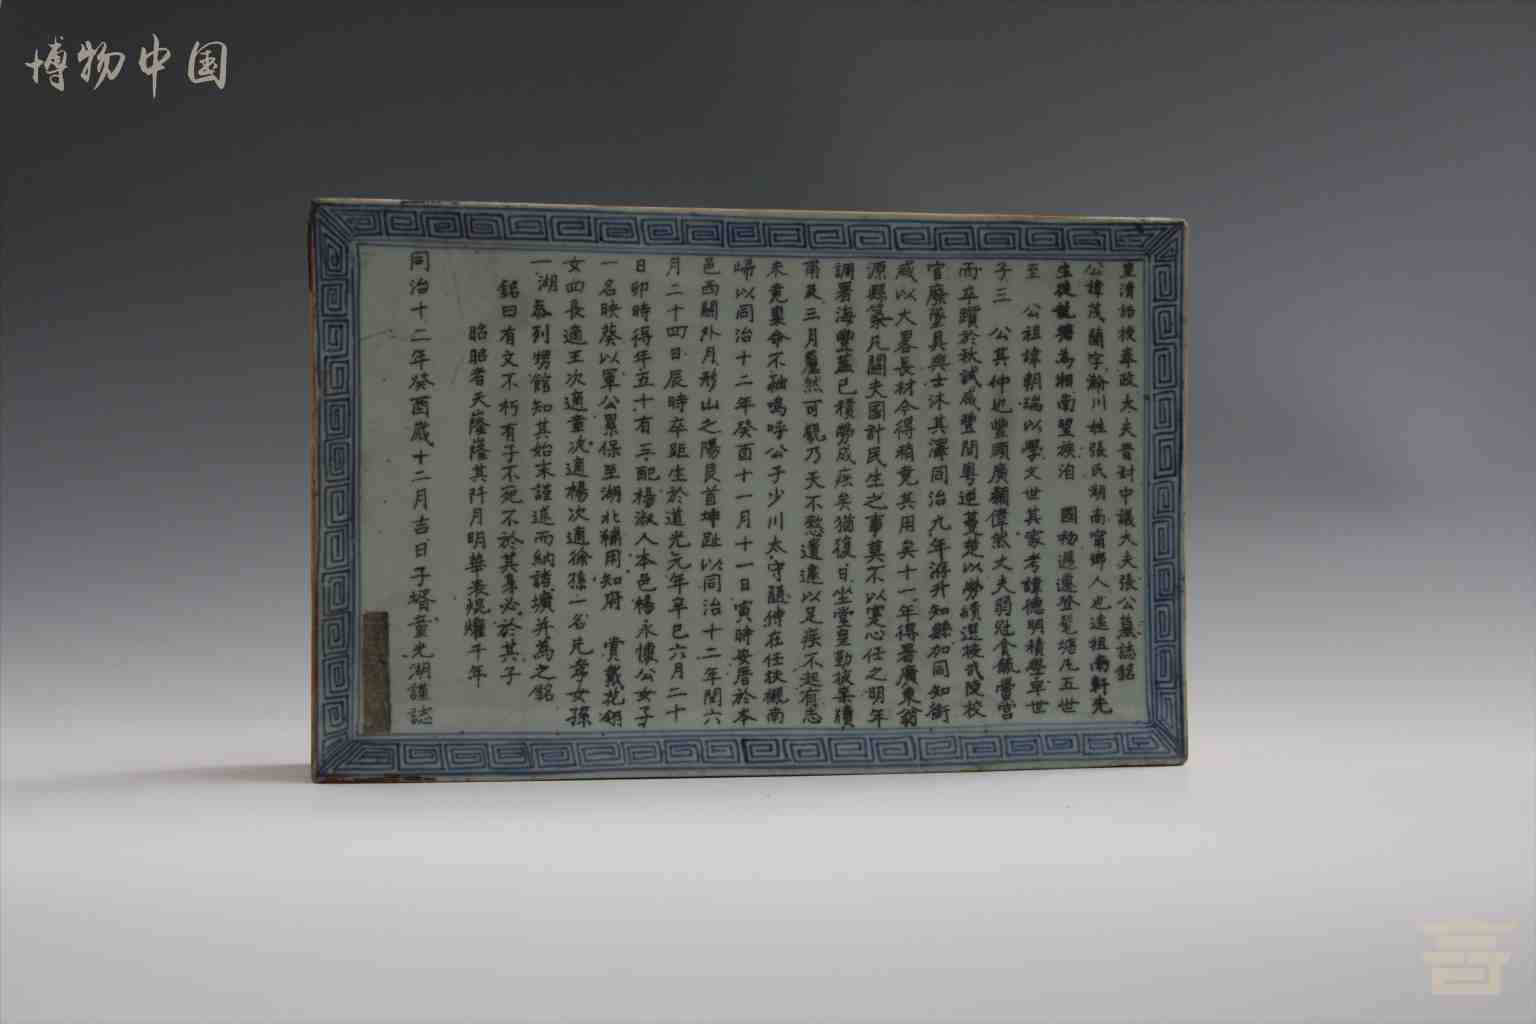 博物中国
皇清誥授奉政大夫晉封中議大夫張公墓誌銘
公諱茂蘭字瀚川姓張氏湖南甯鄉人也遠祖南軒先
生後裔為湘南望族洎　國初遇遷登髦塘凡五世
至　公祖諱朝瑞以學文世其家考諱德明積學早世
子三　公其仲也豐頤廣顙偉然丈夫弱冠食餼黌宮
而卒躓於秋試咸豐間粵逆蔓楚以勞績選授武陵校
官廢墜具興士沐其澤同治九年游升知縣加同知銜
咸以大署長材今得稍竟其用矣十一年得署廣東翁
源縣篆凡關夫國計民生之事莫不以寔心任之明年
調署海豐蓋已積勞成疾矣猶復日坐堂皇勤披案牘
甫及三月釐然可觀乃天不憖遺遽以足疾不起有志
未竟稟命不融嗚呼公子少川太守隨侍在任扶櫬南
歸以同治十二年癸酉十一月十一日寅時安厝於本
邑西關外月形山之陽艮首坤趾以同治十二年閏六
月二十四日辰時卒距生於道光元年辛巳六月二十
日卯時得年五十有三配楊淑人本邑楊永懷公女子
一名映葵以軍公累保至湖北補用知府　賞戴花翎
女四長適王次適童次適楊次適徐孫一名凡孝女孫
一湖忝列甥館知其始末謹述而納諸壙并為之銘
銘曰有文不朽有子不死不於其身必於其子
昭昭者天隆隆其阡月明華表焜燿千年
同治十二年癸酉歲十二月吉日子壻童光湖謹誌